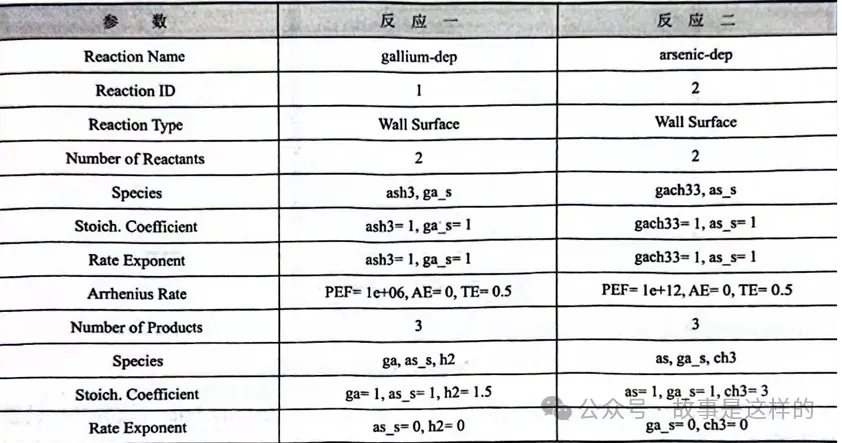 参 数 反 应 一 反 应 二
Reaction Name gallium-dep arsenic-dep
Reaction ID 1 2
Reaction Type Wall Surface Wall Surface
Number of Reactants 2 2
Species ash3, ga_s gach33, as_s
Stoich. Coefficient ash3= 1, ga_s= 1 gach33= 1, as_s= 1
Rate Exponent ash3= 1, ga_s= 1 gach33= 1, as_s= 1
Arrhenius Rate PEF= 1e+06, AE= 0, TE= 0.5 PEF= 1e+12, AE= 0, TE= 0.5
Number of Products 3 3
Species ga, as_s, h2 as, ga_s, ch3
Stoich. Coefficient ga= 1, as_s= 1, h2= 1.5 as= 1, ga_s= 1, ch3= 3
Rate Exponent as_s= 0, h2= 0 ga_s= 0, ch3= 0
公众号·故事是这样的